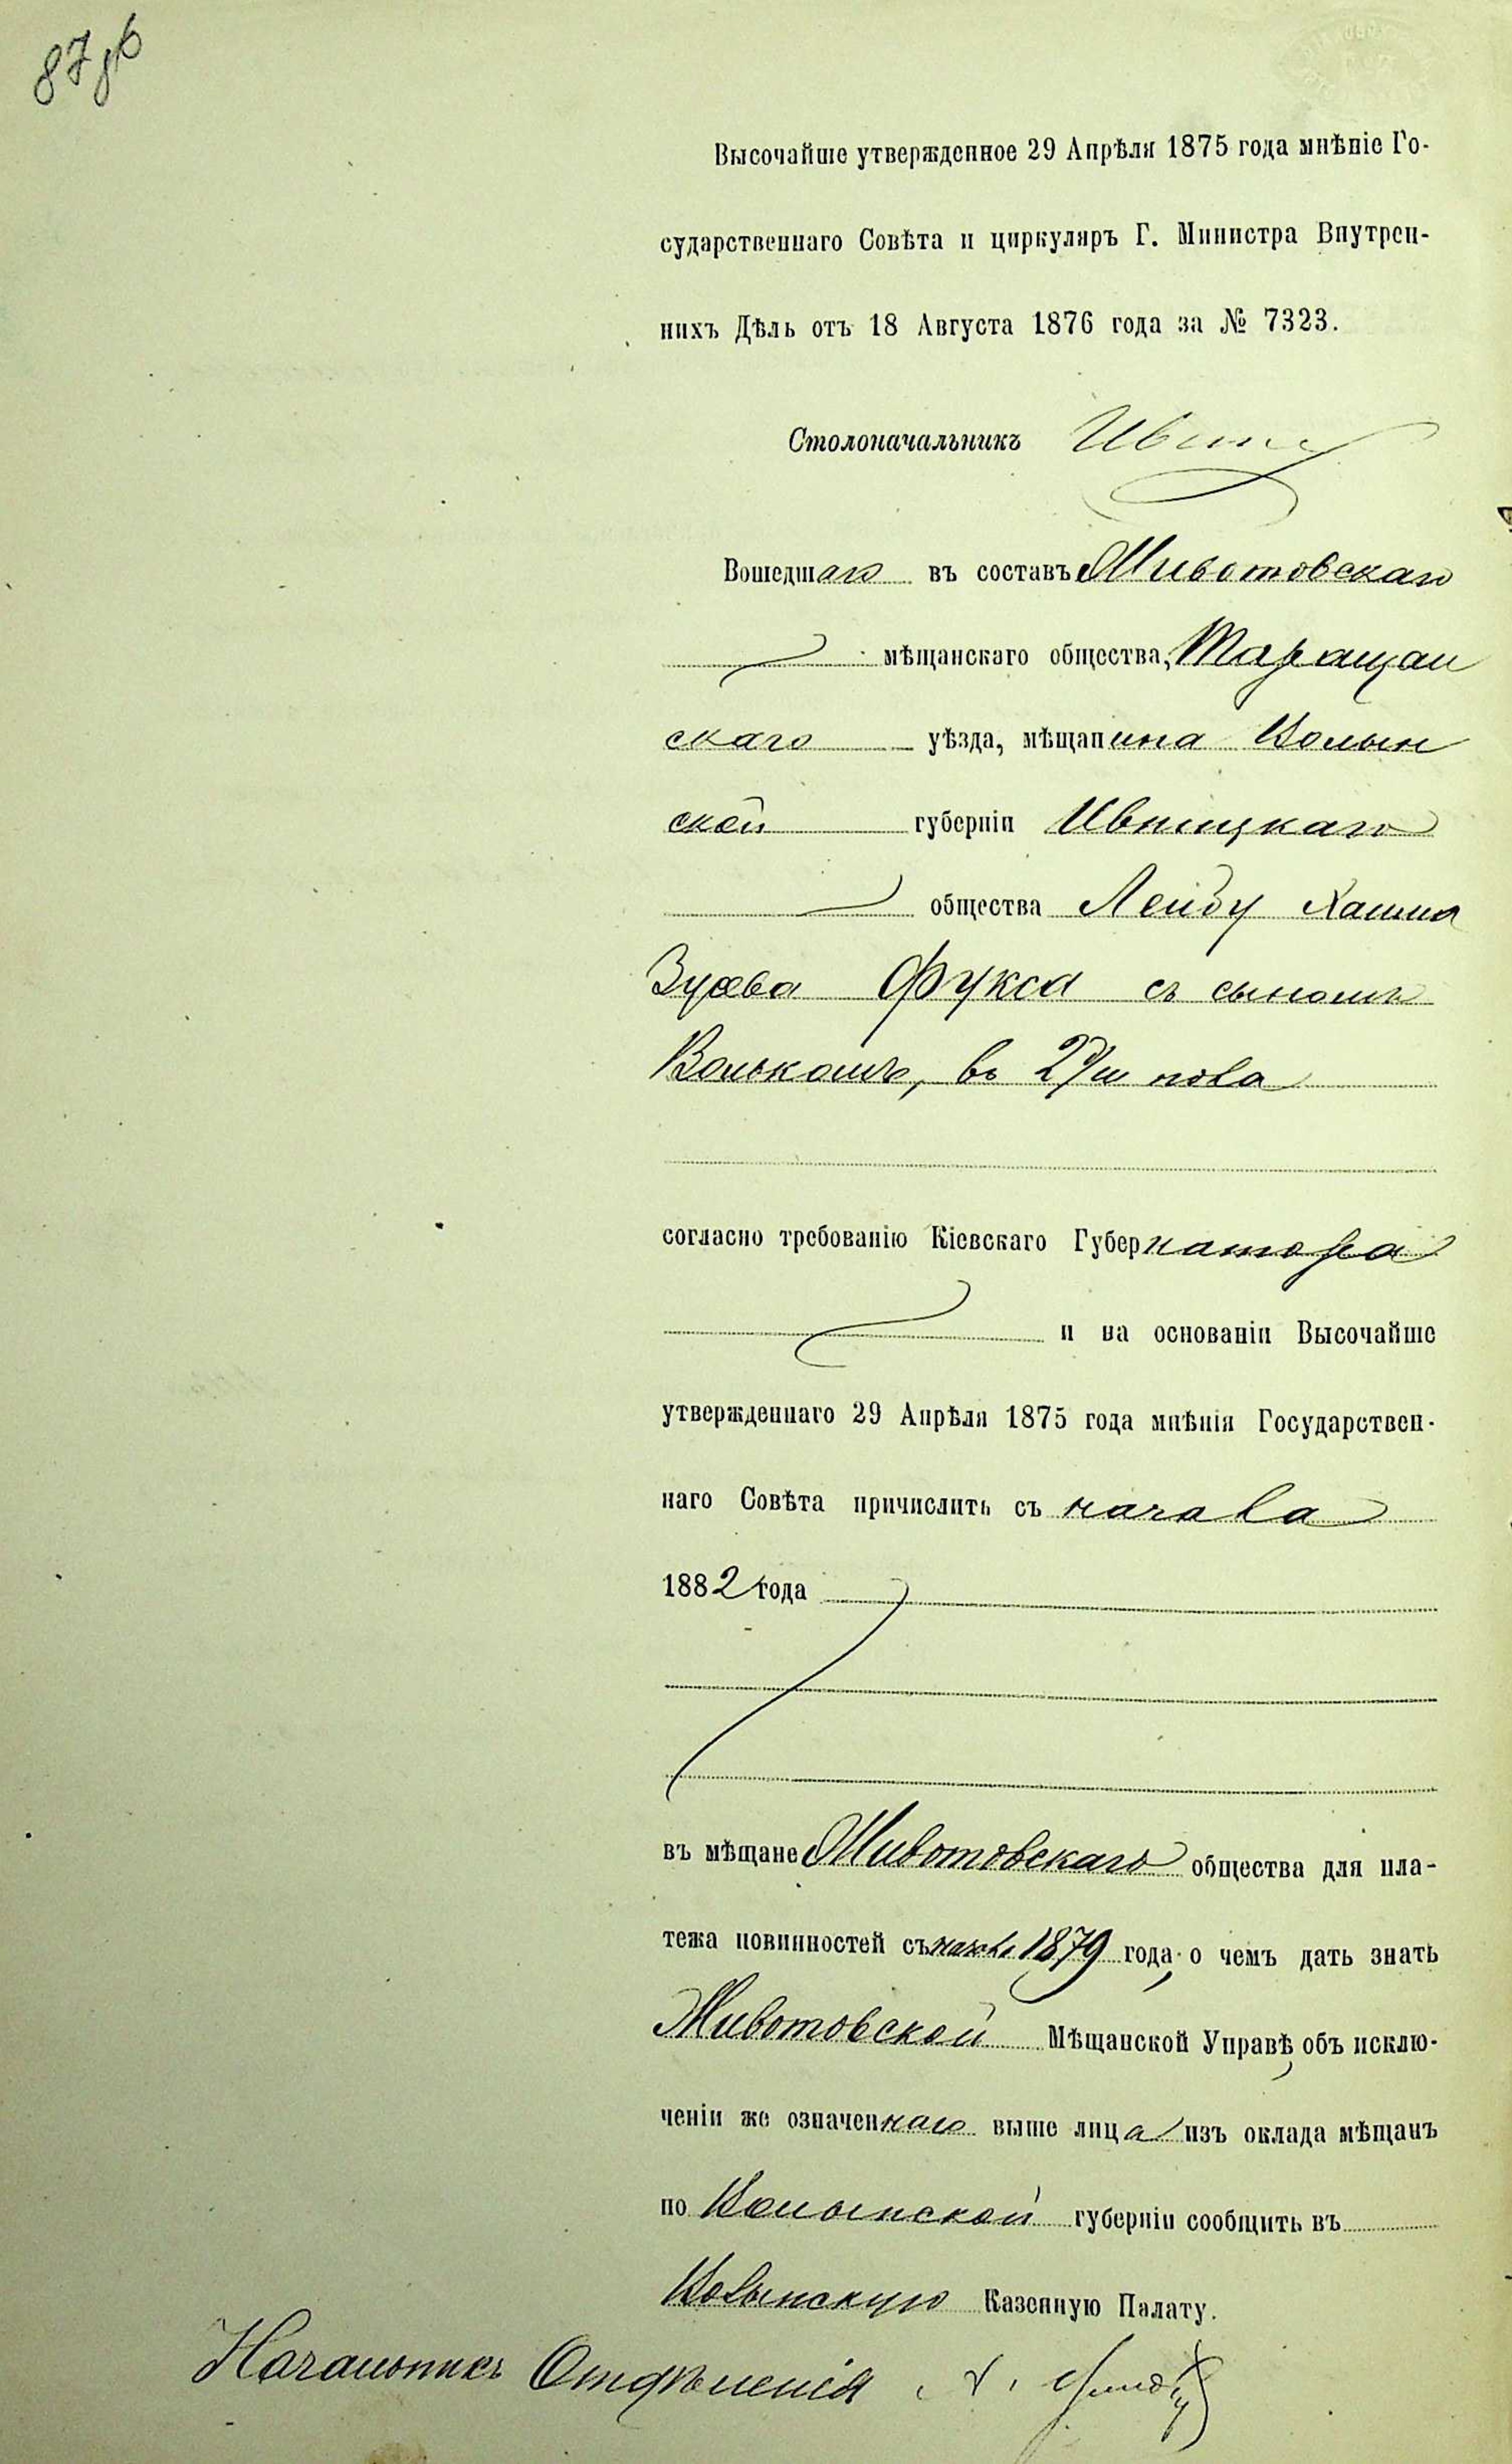 87 об
Высочайше утвержденное 29 Апрѣля 1875 года мнѣніе Го-
сударственнаго Совѣта и циркуляръ Г. Министра Внутрен-
нихъ Дѣлъ отъ 18 Августа 1876 года за № 7323.
Столоначальникъ
Вошедшаго въ составъ Животовскаго
мѣщанскаго общества, Таращан
скаго уѣзда, мѣщанина Волын
ской губерніи Ивницкаго
общества Лейбу Хаима
Зусева Фукса съ сыномъ
Волькомъ, въ 2 м пола
согласно требованію Кіевскаго Губернатора
и на основаніи Высочайше
утвержденнаго 29 Апрѣля 1875 года мнѣнія Государствен-
наго Совѣта причислить съ начала
1882 года
въ мѣщане Животовскаго общества для пла-
тежа повинностей съ начала 1879 года, о чемъ дать знать
Животовской Мѣщанской Управѣ, объ исклю-
ченіи же означеннаго выше лица изъ оклада мѣщанъ
по Волынской губерніи сообщить въ
Волынскую Казенную Палату.
Начальникъ Отдѣленія